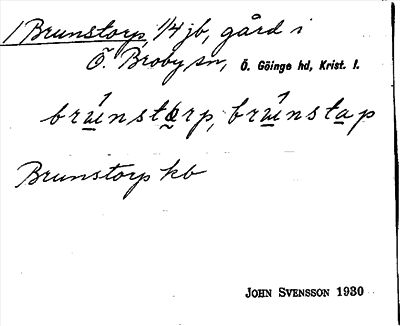 1 Brunstorp, 1/4 jb, gård i
Ö. Broby sn, Ö. Göinge hd, Krist. l.
brúnstærp, brúnstap
Brunstorp kb
JOHN SVENSSON 1930